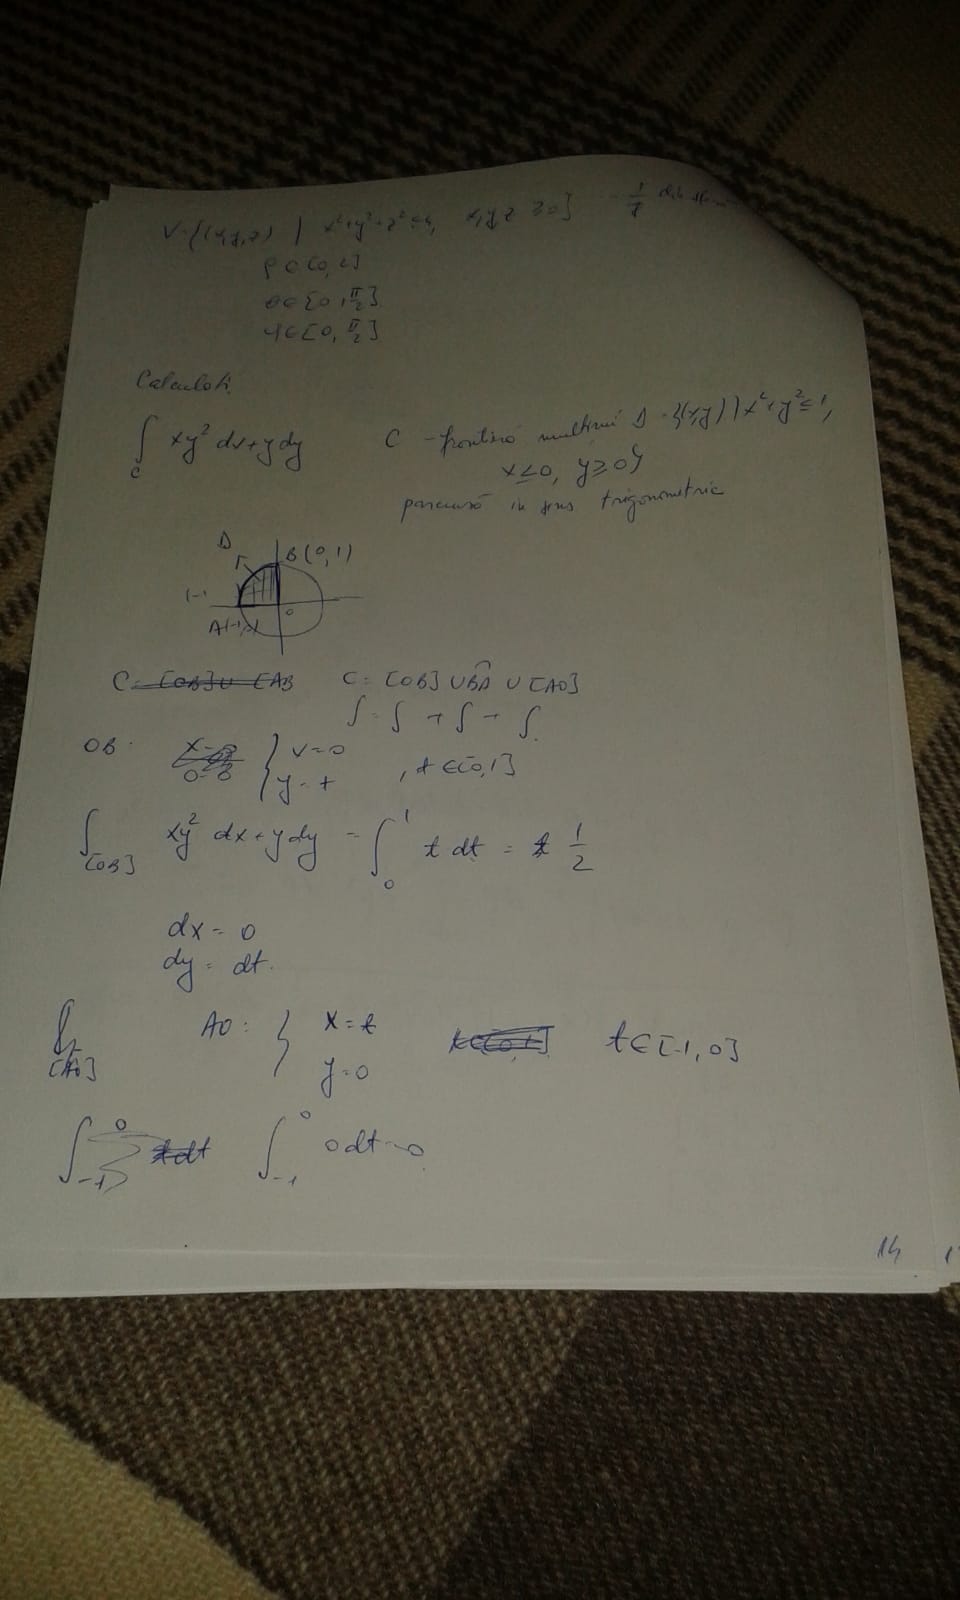 V={(x,y,z) | x²+y²+z²≤4, x,y,z ≥0} - 1/8 din
ρ∈[0,2]
θ∈[0,π/2]
φ∈[0,π/2]
Calculati
∫_C xy² dx+y dy C - frontiera multimii D={(x,y) | x²+y²≤1,
x≤0, y≥0}
parcursă in sens trigonometric
D B(0,1)
(-1
0
A(-1,0)
C = [OB] ∪ [AB C = [OB] ∪ BA ∪ [AO]
∫ = ∫ + ∫ + ∫
OB: { x=0
y=t , t∈[0,1]
∫_[OB] xy² dx+y dy = ∫₀¹ t dt = 1/2
dx = 0
dy = dt.
∫_[AO] AO: { x=t t∈[-1,0]
y=0
∫₋₁⁰ t dt ∫₋₁⁰ 0 dt=0
14